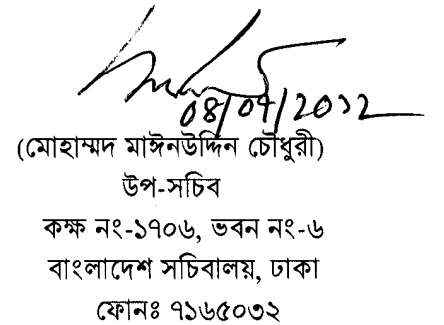 08/07/2012
(মোহাম্মদ মাঈনউদ্দিন চৌধুরী)
উপ-সচিব
কক্ষ নং-১৭০৬, ভবন নং-৬
বাংলাদেশ সচিবালয়, ঢাকা
ফোনঃ ৭১৬৫০৩২